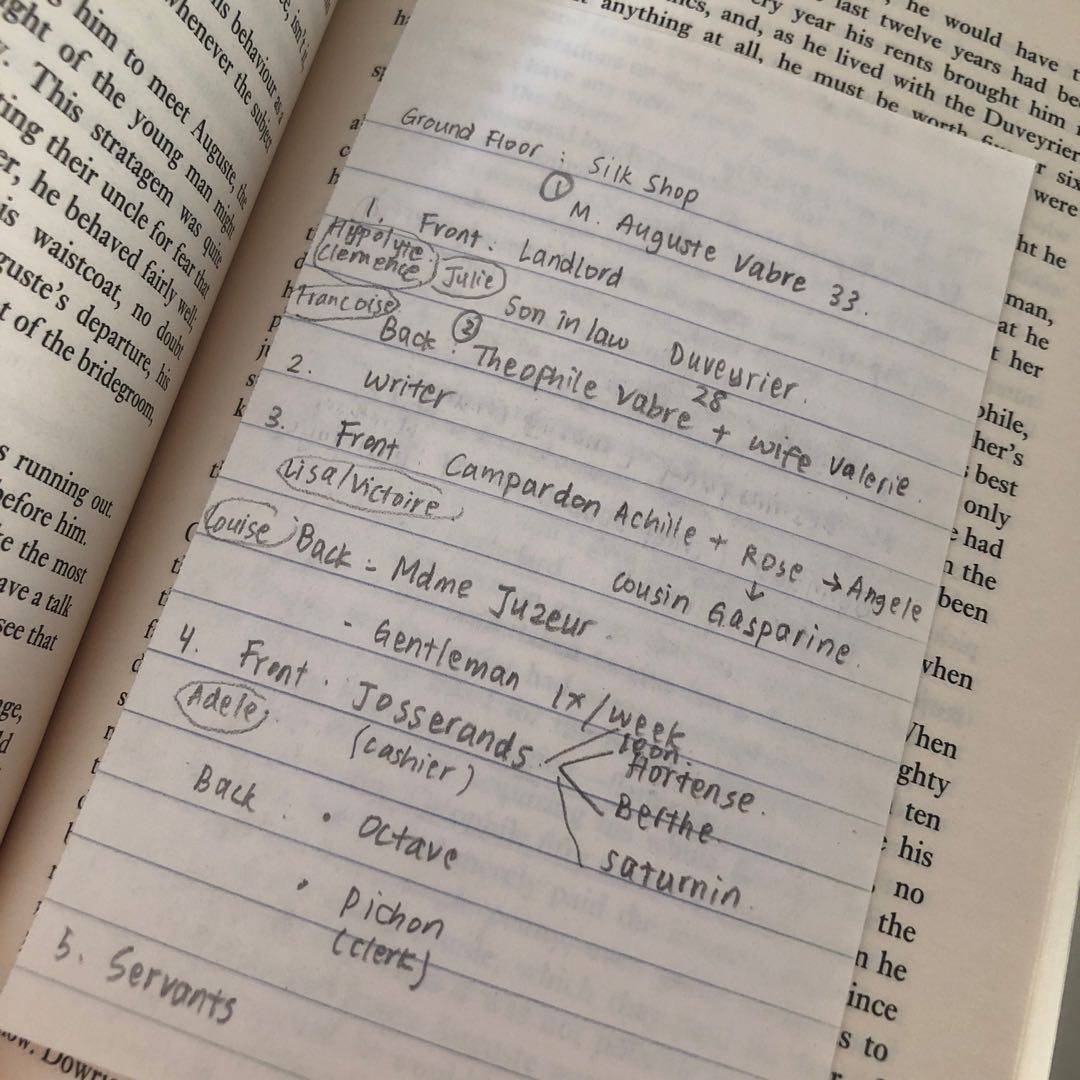 his behaviour as a
whenever the subject
him to meet Auguste, the
ght of the young man might
This stratagem was quite
ting their uncle for fear that
er, he behaved fairly well;
is waistcoat, no doubt
guste's departure, his
t of the bridegroom,
s running out.
before him.
te the most
ave a talk
see that
he would have
last twelve years had
ry year his rents brought him
ics, and, as he lived with the Duveyrier
anything at all, he must be worth
six
were
ht he
man,
at he
t her
her's
best
only
e had
n the
been
when
When
ghty
ten
his
no
the
n he
ince
s to
Ground Floor : Silk Shop
① M. Auguste Vabre 33.
1. Front. Landlord
Hippolyte.
Clemence Julie
Son in law Duveyrier.
Francoise
Back. ② Theophile Vabre 28 + wife Valerie.
2. writer
3. Front. Campardon Achille + Rose → Angele
Lisa/Victoire
↓
cousin Gasparine.
Louise Back - Mdme Juzeur.
- Gentleman 1x/week
4. Front. Josserands
Adele
(cashier)
Leon.
Hortense.
Berthe.
Saturnin.
Back. • Octave
• Pichon
(clerk)
5. Servants